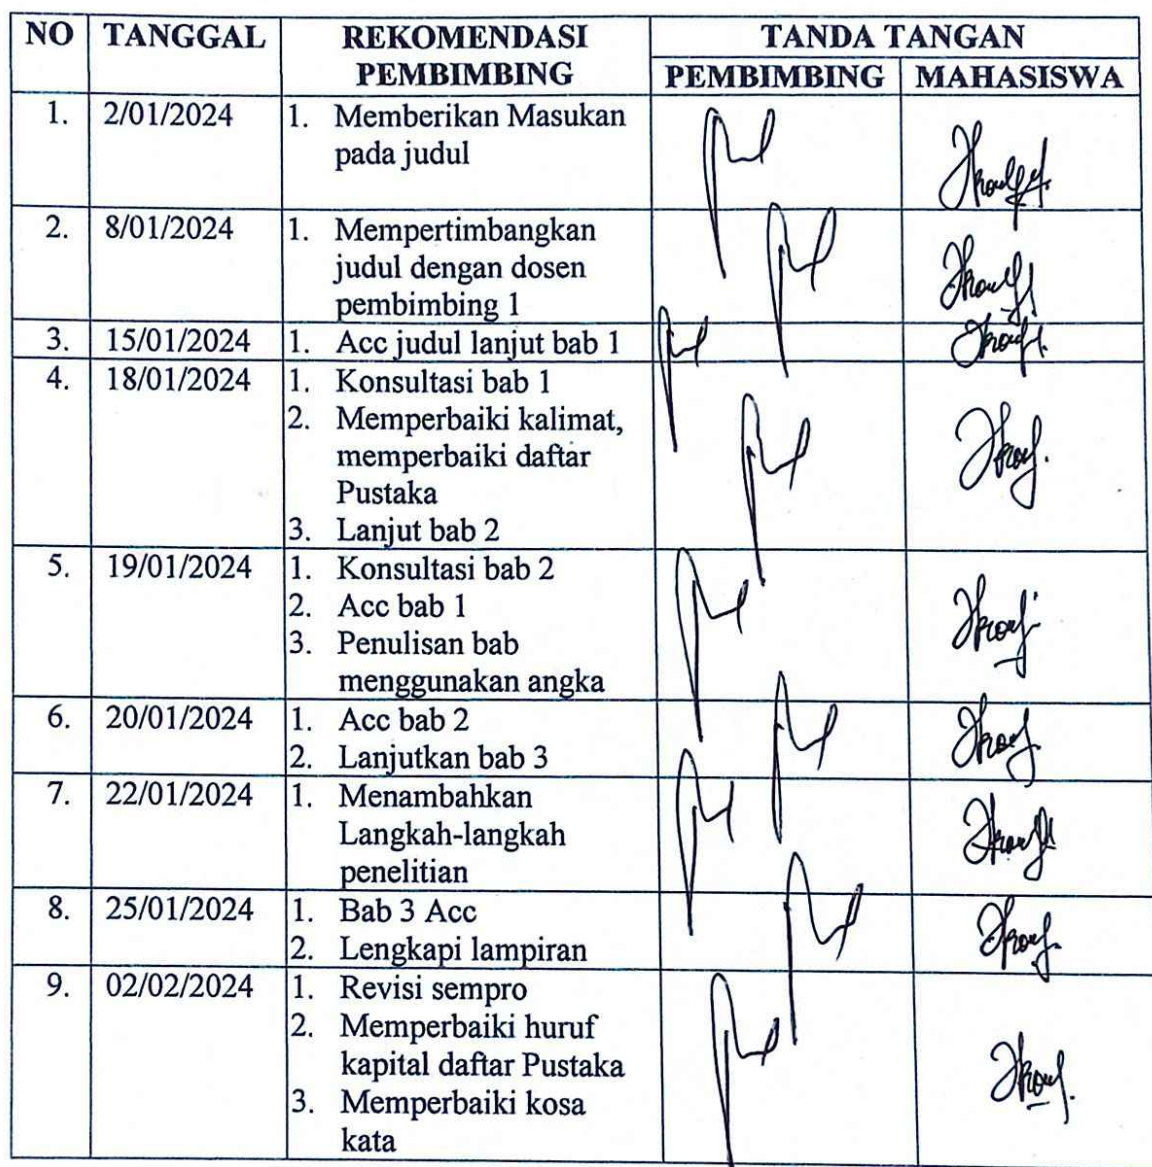 NO TANGGAL REKOMENDASI PEMBIMBING TANDA TANGAN
PEMBIMBING MAHASISWA
1. 2/01/2024 1. Memberikan Masukan
pada judul
2. 8/01/2024 1. Mempertimbangkan
judul dengan dosen
pembimbing 1
3. 15/01/2024 1. Acc judul lanjut bab 1
4. 18/01/2024 1. Konsultasi bab 1
2. Memperbaiki kalimat,
memperbaiki daftar
Pustaka
3. Lanjut bab 2
5. 19/01/2024 1. Konsultasi bab 2
2. Acc bab 1
3. Penulisan bab
menggunakan angka
6. 20/01/2024 1. Acc bab 2
2. Lanjutkan bab 3
7. 22/01/2024 1. Menambahkan
Langkah-langkah
penelitian
8. 25/01/2024 1. Bab 3 Acc
2. Lengkapi lampiran
9. 02/02/2024 1. Revisi sempro
2. Memperbaiki huruf
kapital daftar Pustaka
3. Memperbaiki kosa
kata